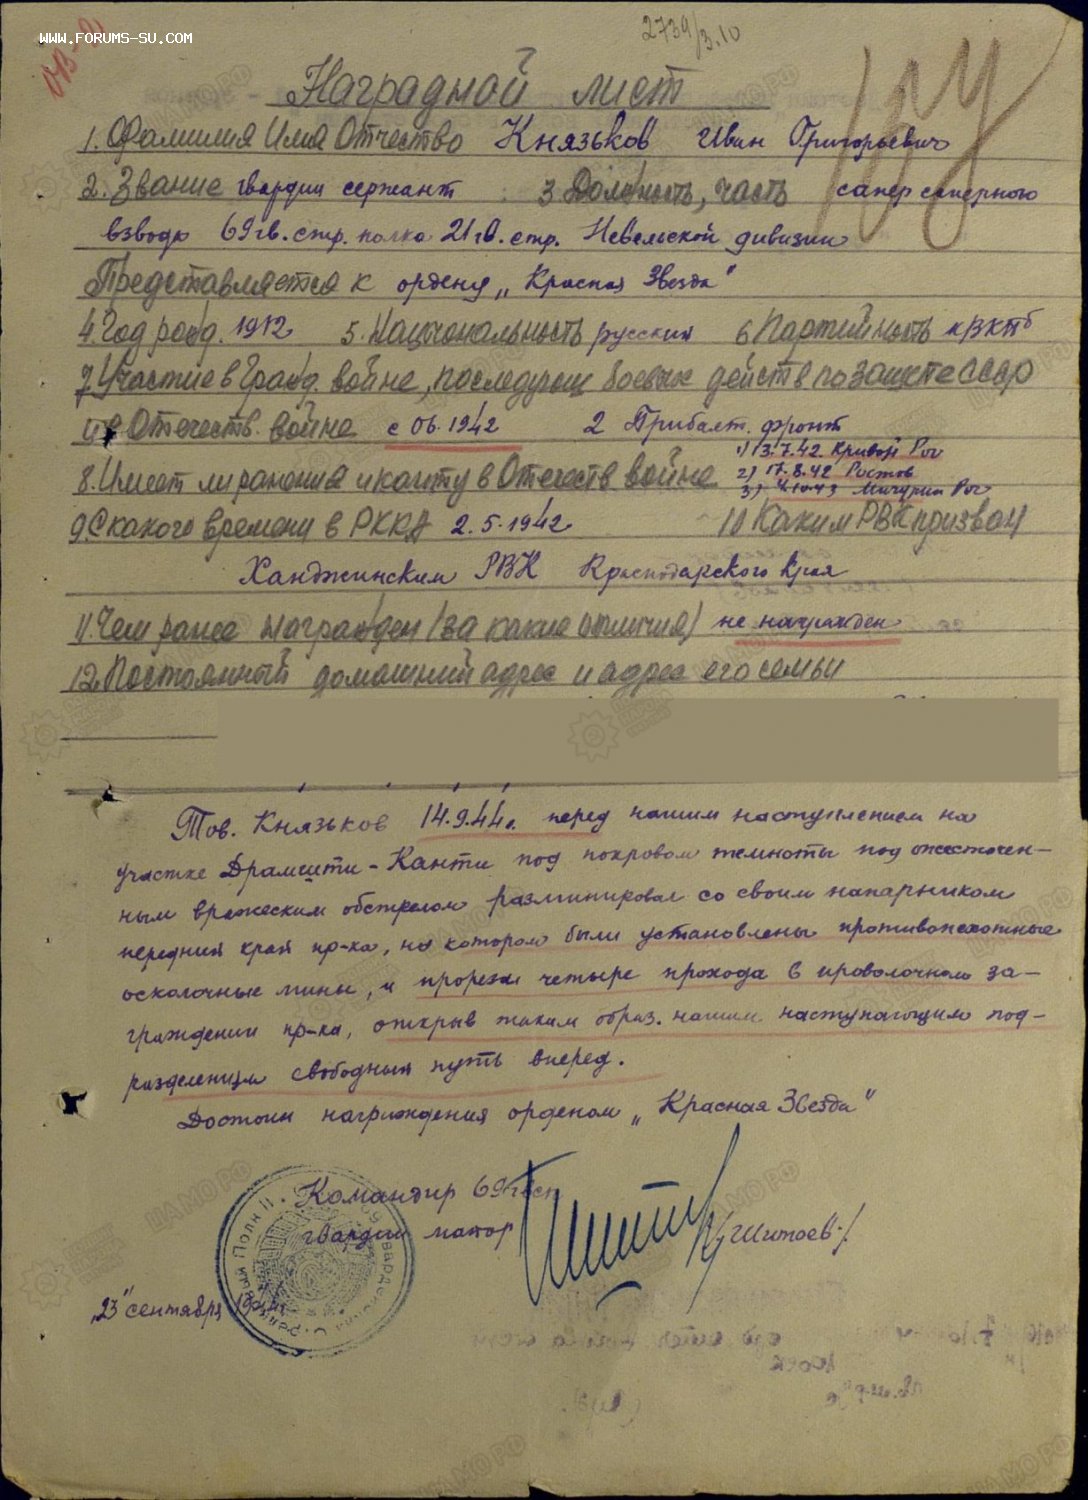 WWW.FORUMS-SU.COM
2739/3.10
Наградной лист
1. Фамилия Имя Отчество Князьков Иван Григорьевич
2. Звание гвардии сержант 3 Должность, часть сапер саперного
взвода 69 гв. стр. полка 21 гв. стр. Невельской дивизии
Представляется к ордену „Красная Звезда"
4. Год рожд. 1912 5. Национальность русский 6 Партийность
7. Участие в Гражд. войне, последующ боевых действ по защите СССР
и в Отечеств. войне с 06.1942 2 Прибалт. фронт
1) 13.7.42 Кривой Рог
8. Имеет ли ранения и конту в Отечеств войне 2) 17.8.42 Ростов
3) 4.10.43 Мичурин Рог
9. С какого времени в РККА 2.5.1942 10 Каким РВК призван
Ханджинским РВК Краснодарского края
11. Чем ранее награжден (за какие отличия) не награжден
12. Постоянный домашний адрес и адрес его семьи
Тов. Князьков 14.9.44г. перед нашим наступлением на
участке Драмшти-Канти под покровом темноты под ожесточен-
ным вражеским обстрелом разминировал со своим напарником
передний край пр-ка, на котором были установлены противопехотные
осколочные мины, и прорезал четыре прохода в проволочном за-
граждении пр-ка, открыв таким образ. нашим наступающим под-
разделениям свободный путь вперед.
Достоин награждения орденом „Красная Звезда"
Командир 69 гвсп
гвардии майор /Шитоев/
„23" сентября 1944г